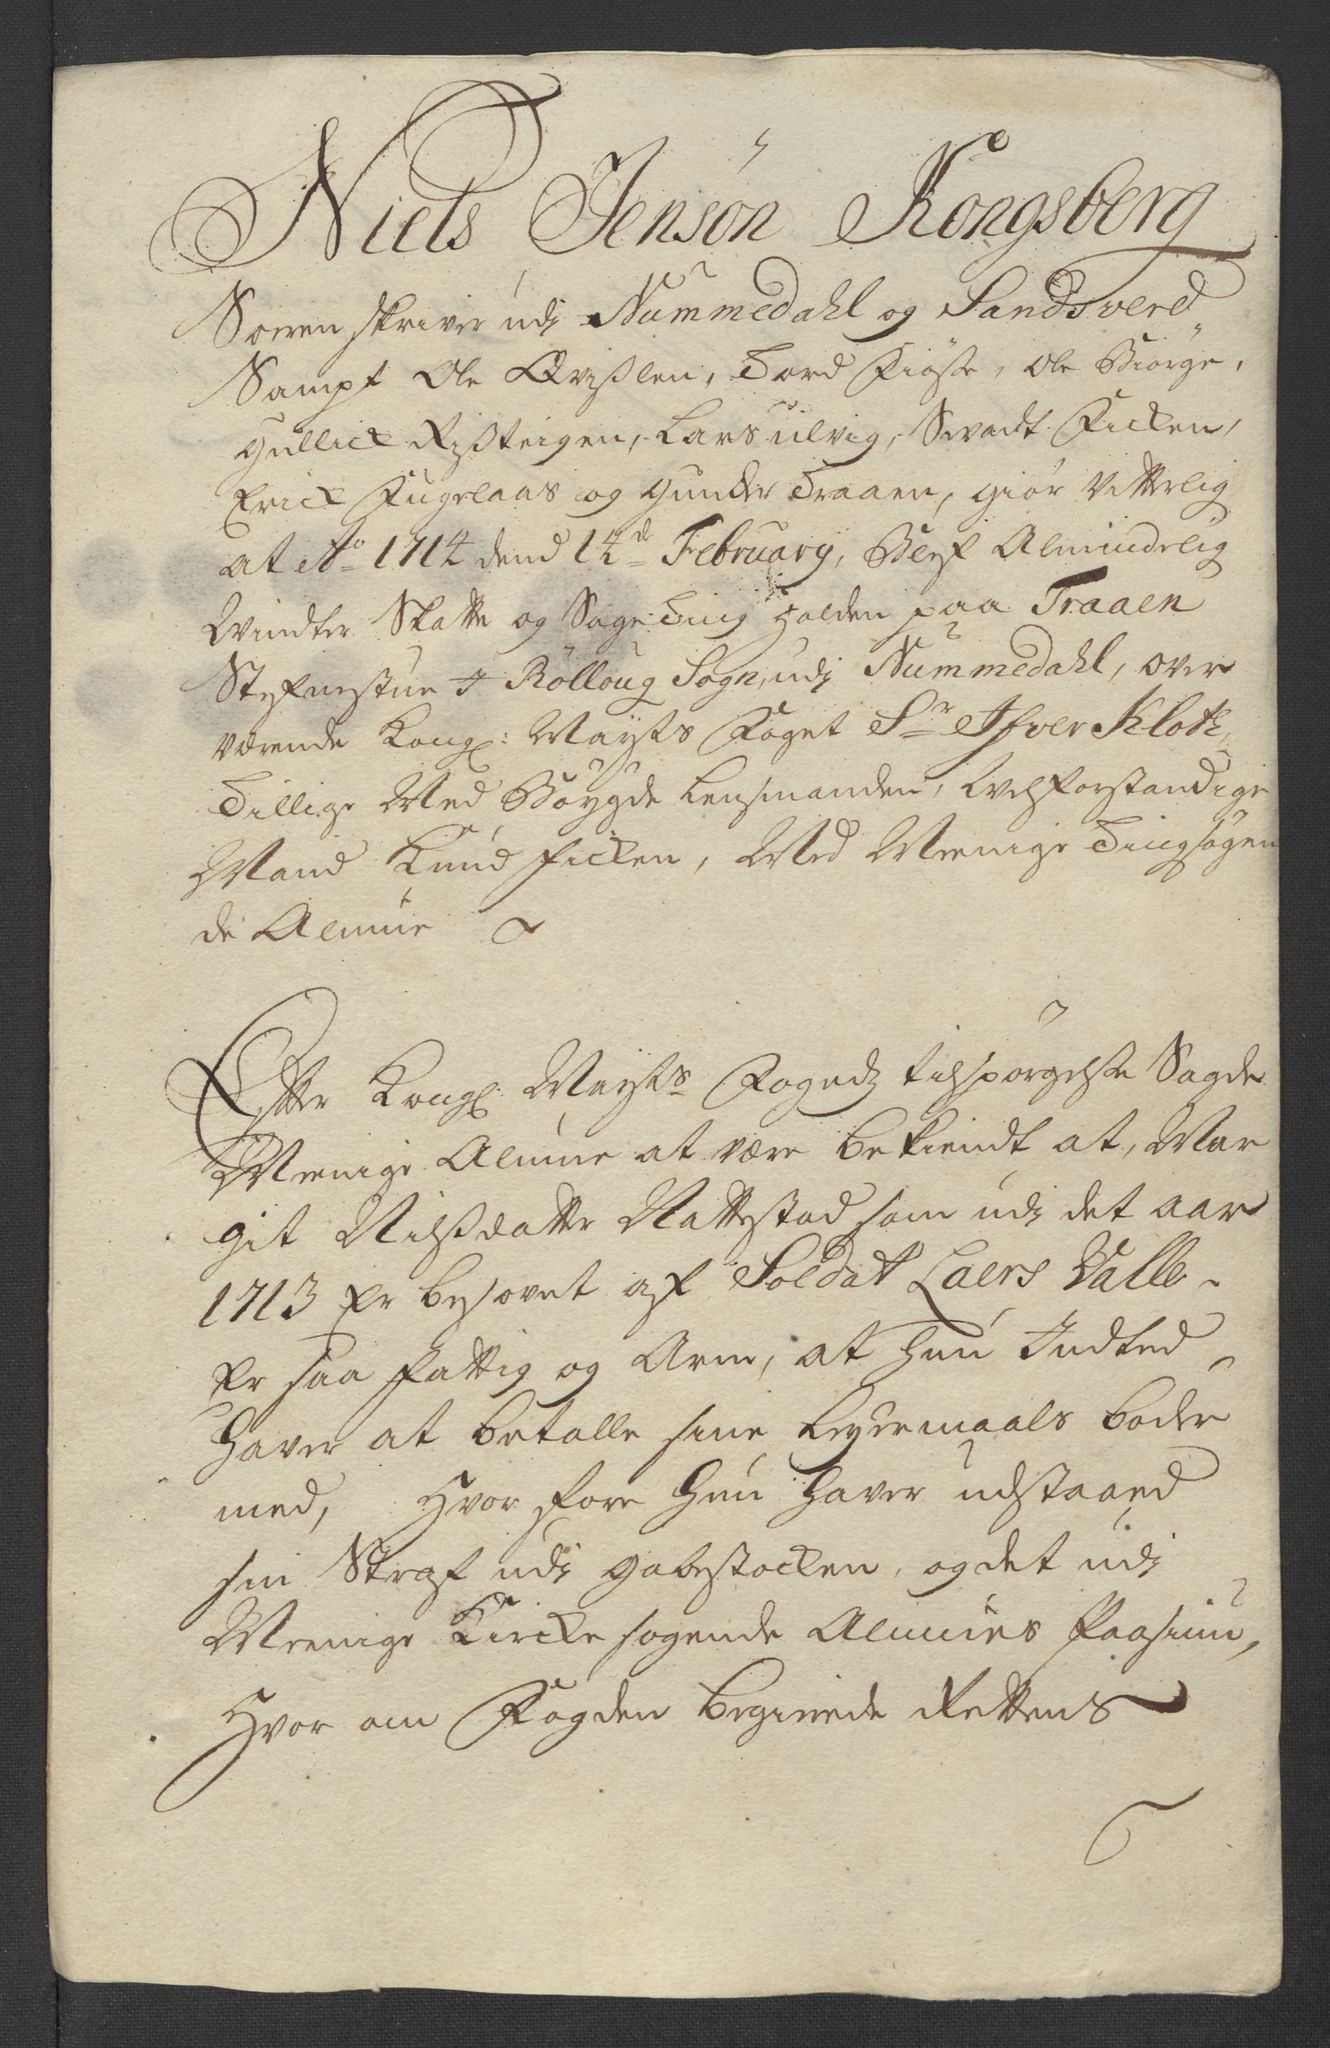 Niels Jensøn Kongsberg
Sorrenskriver udj Nummedahl og Sandsverd
Sampt Ole Qvißlen, Tord Fiøße, Ole Biørge,
Gullick Rißteigen, Lars Ulvig, Svadt Ficken,
Erick Fugelaas og Gunder Traaen, giør Vitterlig
at Ao 1714 dend 14d February, Blef Almindelig
Windter Skatte og Sage Ting holden paa Traaen
Stefnestue J Rolloug Sogn, udj Nummedahl, over
værende Kongl: Mayts Foget Sr Ifver Kloth,
Tillige Med Bøygde Lensmanden, Welforstandige
Mand Knud Ficken, Med Meenige Tingsøgen
de Almue
Efter Kongl: Mayts Fogedz tilspørgelse Sagde
Meenige Almue at være bekiendt at, Mar
git Nilsdatter Nattestad som udj det aar
1713 Er besovet af Soldat Laers Valle
Er saa fattig og Arm, at hun Indted
haver at betalle sine Leyermaals bøder
med, Hvor fore hun haver udstaaed
sin Straf udj gabestocken, og det udj
Meenige Kircke søgende Almues Paasiun,
Hvor om Fogden begierede Rettens